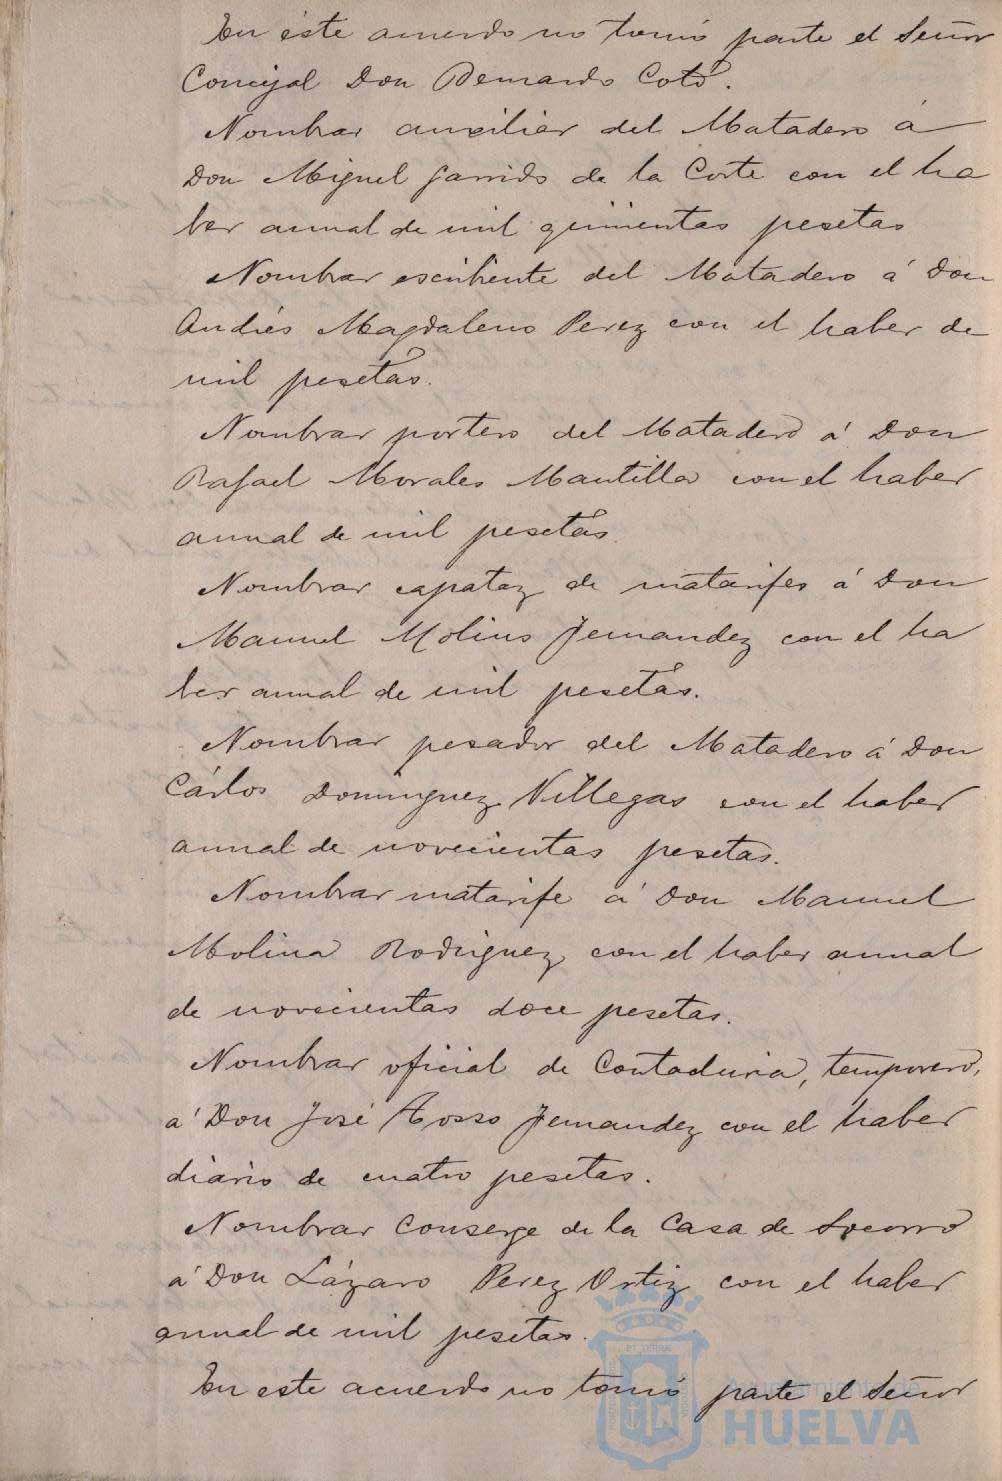 En éste acuerdo no tomó parte el Señor
Concejal Don Bernardo Coto.
Nombrar auxiliar del Matadero á
Don Miguel Garrido de la Corte con el ha
ber anual de mil quinientas pesetas
Nombrar escribiente del Matadero á Don
Andrés Magdaleno Perez con el haber de
mil pesetas.
Nombrar portero del Matadero á Don
Rafael Morales Mantilla con el haber
anual de mil pesetas.
Nombrar capataz de matarifes á Don
Manuel Molino Fernandez con el ha
ber anual de mil pesetas.
Nombrar pesador del Matadero á Don
Cárlos Dominguez Villegas con el haber
anual de novecientas pesetas.
Nombrar matarife á Don Manuel
Molina Rodriguez con el haber anual
de novecientas doce pesetas.
Nombrar oficial de Contaduria, temporero,
á Don José Tosso Fernandez con el haber
diario de cuatro pesetas.
Nombrar Conserge de la Casa de Socorro
á Don Lázaro Perez Ortiz con el haber
anual de mil pesetas.
En este acuerdo no tomó parte el Señor
Ayuntamiento de
HUELVA